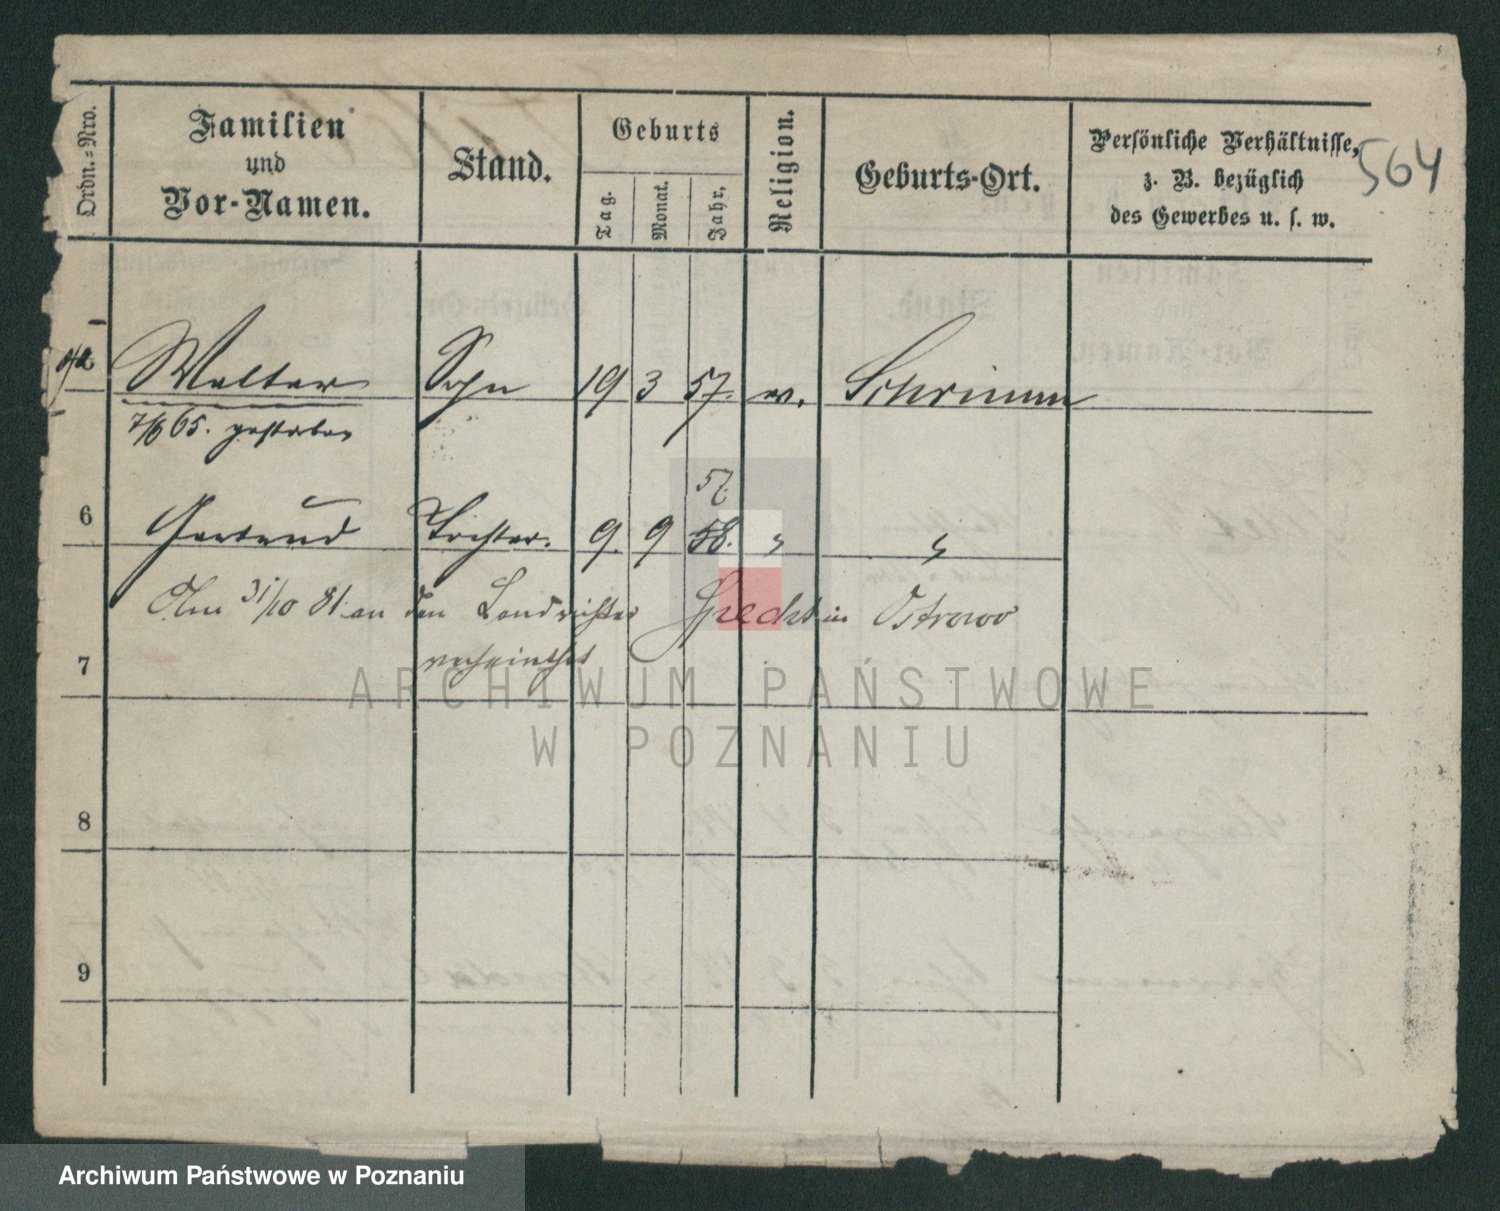 Ordn.=Nro. Familien und Vor-Namen. Stand. Geburts Tag. Monat. Jahr. Religion. Geburts-Ort. Persönliche Verhältnisse, z. B. bezüglich des Gewerbes u. s. w.
564
Walter Sohn 19 3 57. ev. Schrimm
7/6 65. gestorben
57.
6 Gertrud Tochter. 9. 9 58. " "
Am 31/10 81 an den Landrichter in Ostrowo
7 verheirathet
ARCHIWUM PAŃSTWOWE
W POZNANIU
8
9
Archiwum Państwowe w Poznaniu